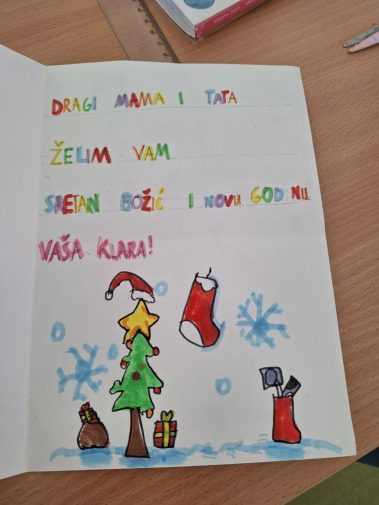 DRAGI MAMA I TATA
ŽELIM VAM
SRETAN BOŽIĆ I NOVU GODINU
VAŠA KLARA!